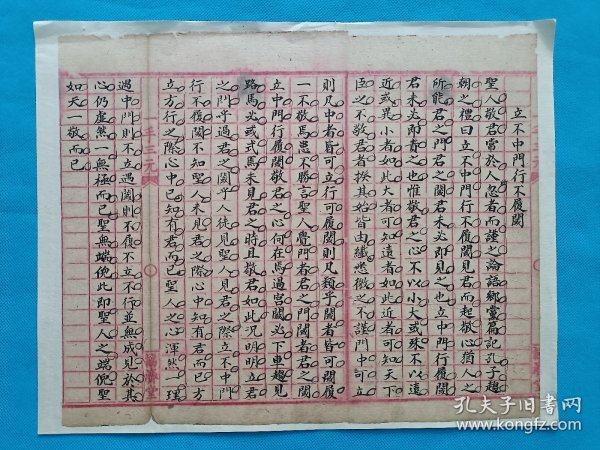 立不中門行不履閾
聖人敬君當於人忽者而謹之論語鄉黨篇記孔子趨
朝之禮曰立不中門行不履閾見君而起敬心猶人之
所能君之門君之閾君未必即見之也立中門行履閾
君未必即責之也惟敬君之心不以小大或殊不以遠
近或異小者如此大者可知遠者如此近者可知天下
臣之不敬君者揆其始皆由纖悉微之不謹門中可立
則凡中者皆可立行可履閾則凡類乎閾者皆可履
一不敬焉患不勝言聖人覺門者君之門閾者君之閾
立中門行履閾敬君之心何在焉過宮闕必下車趨見
路馬必或式馬未見君之時且敬君如此況明明立君
之門乎過君之閾乎人徒見聖人見君之際立不中門
行不履閾不知聖人未見君之際心中知有君而已方
立方行之際心中已知有君而已聖人之心渾然一理
遇中門則不立遇閾則不履不立不行並無成見於其
心仍虛然一無極而已聖無端倪此即聖人之端倪聖
如天一敬而已
三元
孔夫子旧书网
www.kongfz.com